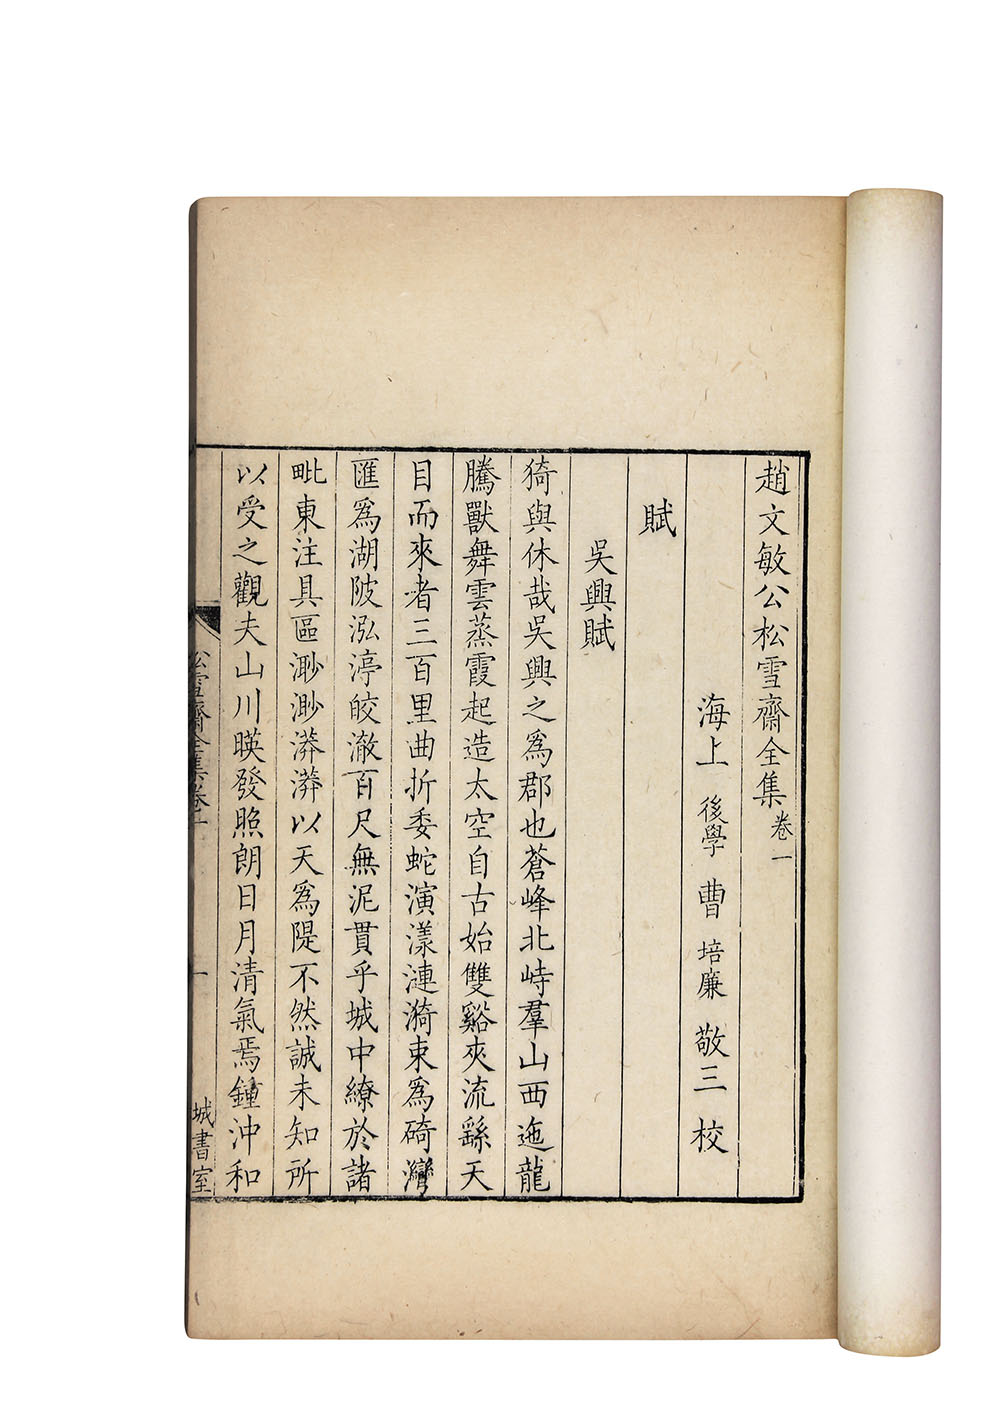 趙文敏公松雪齋全集卷一
海上後學曹培廉敬三校
賦
吳興賦
猗與休哉吳興之爲郡也蒼峰北峙羣山西迤龍
騰獸舞雲蒸霞起造太空自古始雙谿夾流繇天
目而來者三百里曲折委蛇演漾漣漪束爲碕灣
匯爲湖陂泓渟皎澈百尺無泥貫乎城中繚於諸
毗東注具區渺渺漭漭以天爲隄不然誠未知所
以受之觀夫山川暎發照朗日月清氣焉鍾沖和
松雪齋全集卷一
一
城書室